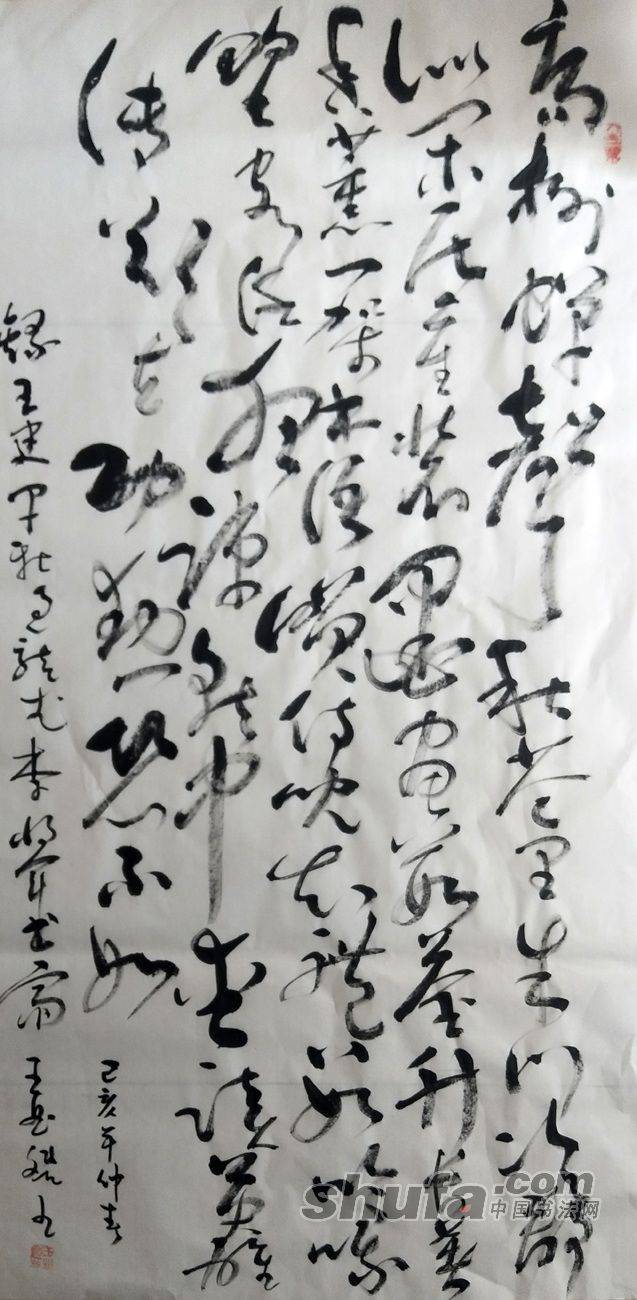 高樹蟬聲秋巷里朱门冷静
似闲居重装墨画数茎竹長著
香薰一架书语笑侍儿知禮数吟哦
野客任狂疎就中愛读英雄
传欲立功勋恐不如
録王建早秋过龙武李将军书斋
己亥年仲春
王 书
shufa.com
中国书法网